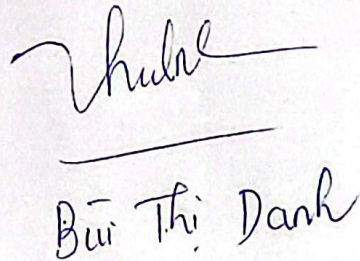 Bùi Thị Danh